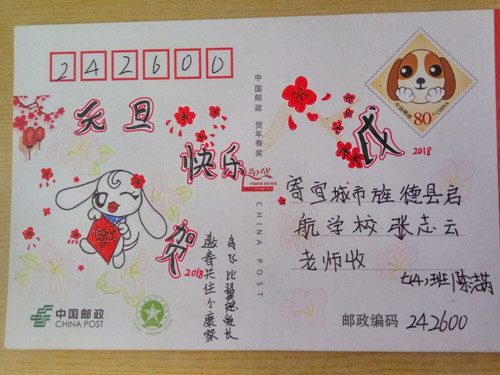 242600
元旦
快乐
贺
2018
鸟飞比翼恩爱长
邀春共住小康家
中国邮政
CHINA POST
中国邮政 贺年有奖
CHINA POST
2018
中国邮政
CHINA
80
戊
2018
寄宣城市旌德县启
航学校张志云
老师收
七(4)班陈满
邮政编码 242600